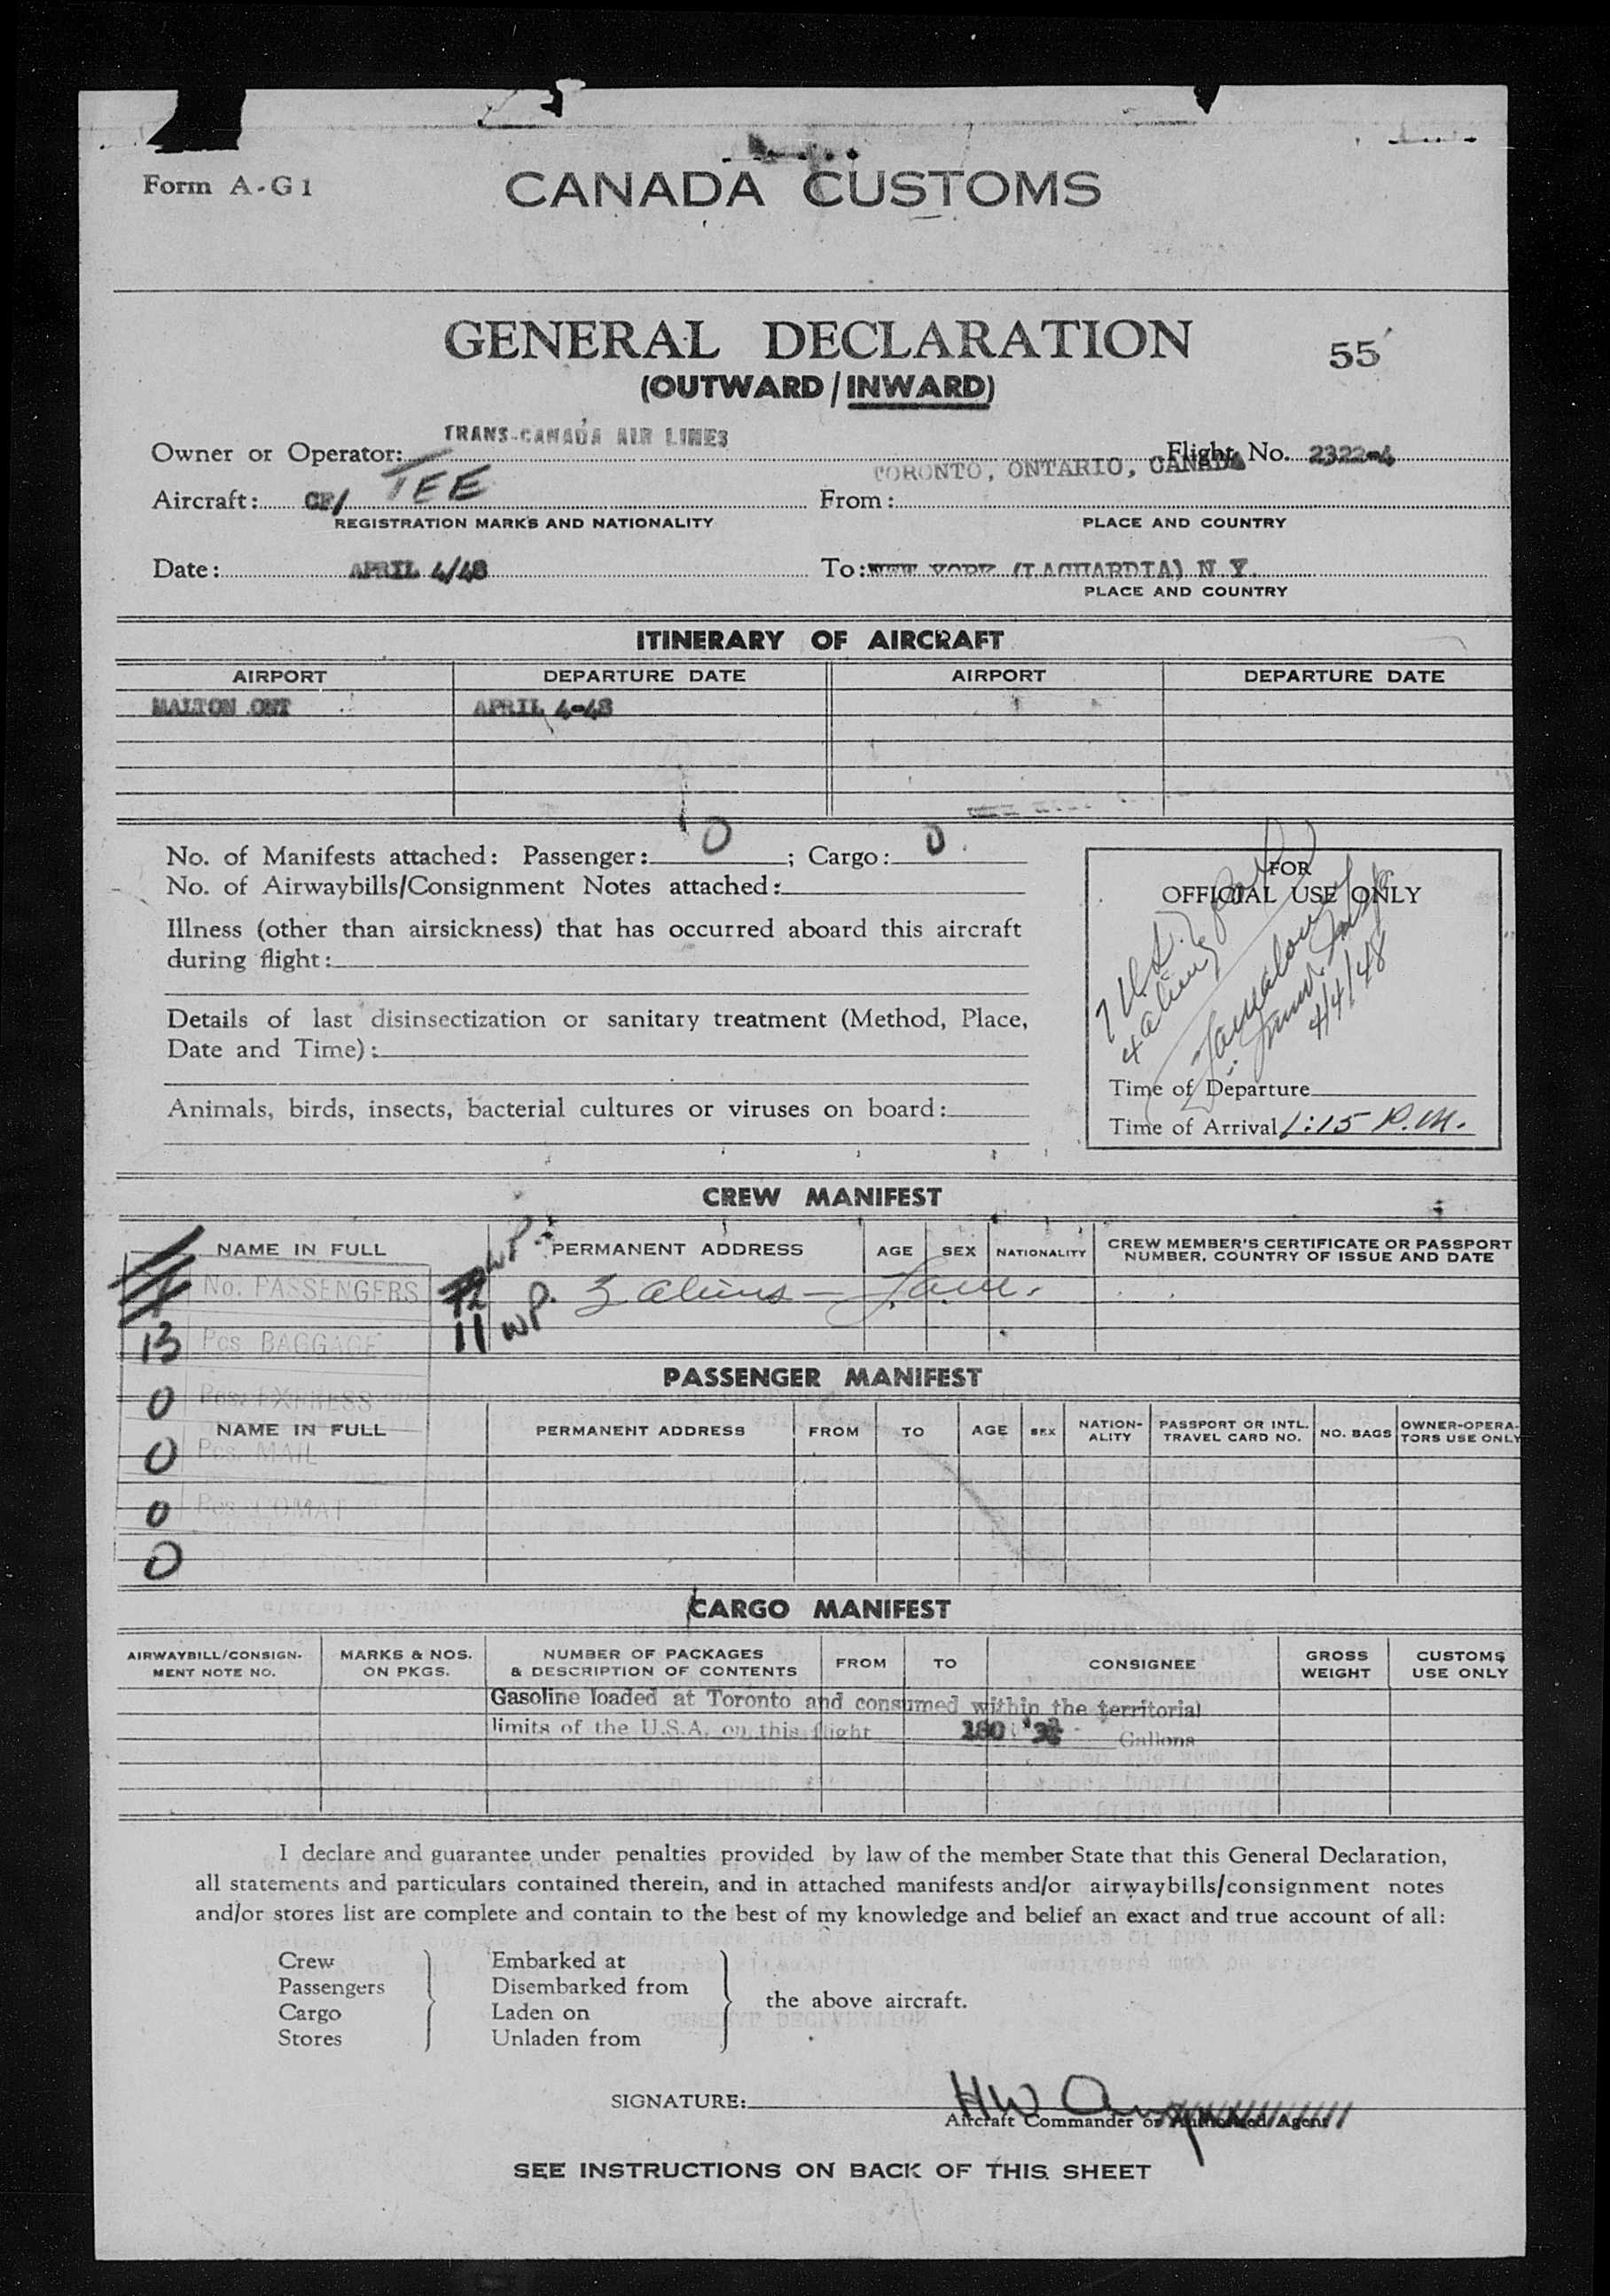 Form A-G1
CANADA CUSTOMS
GENERAL DECLARATION
55
(OUTWARD/INWARD)
TRANS-CANADA AIR LINES
Owner or Operator: Flight No. 2322-4
TORONTO, ONTARIO, CANADA
Aircraft: CF/ TEE From:
REGISTRATION MARKS AND NATIONALITY PLACE AND COUNTRY
Date: APRIL 4/48 To: NEW YORK (LAGUARDIA) N.Y.
PLACE AND COUNTRY
ITINERARY OF AIRCRAFT
AIRPORT DEPARTURE DATE AIRPORT DEPARTURE DATE
MALTON ONT APRIL 4-48
No. of Manifests attached: Passenger: 0 ; Cargo: 0
No. of Airwaybills/Consignment Notes attached:
Illness (other than airsickness) that has occurred aboard this aircraft
during flight:
Details of last disinsectization or sanitary treatment (Method, Place,
Date and Time):
Animals, birds, insects, bacterial cultures or viruses on board:
FOR
OFFICIAL USE ONLY
4 aliens
4/4/48
Time of Departure
Time of Arrival 1:15 P.M.
CREW MANIFEST
NAME IN FULL PERMANENT ADDRESS AGE SEX NATIONALITY CREW MEMBER'S CERTIFICATE OR PASSPORT
NUMBER, COUNTRY OF ISSUE AND DATE
WP
No. PASSENGERS 3 aliens
11 WP.
13 Pcs BAGGAGE
PASSENGER MANIFEST
0 Pcs. EXPRESS
NAME IN FULL PERMANENT ADDRESS FROM TO AGE SEX NATION-
ALITY PASSPORT OR INTL.
TRAVEL CARD NO. NO. BAGS OWNER-OPERA-
TORS USE ONLY
0 Pcs. MAIL
0 Pcs COMAT
0
CARGO MANIFEST
AIRWAYBILL/CONSIGN-
MENT NOTE NO. MARKS & NOS.
ON PKGS. NUMBER OF PACKAGES
& DESCRIPTION OF CONTENTS FROM TO CONSIGNEE GROSS
WEIGHT CUSTOMS
USE ONLY
Gasoline loaded at Toronto and consumed within the territorial
limits of the U.S.A. on this flight Gallons
I declare and guarantee under penalties provided by law of the member State that this General Declaration,
all statements and particulars contained therein, and in attached manifests and/or airwaybills/consignment notes
and/or stores list are complete and contain to the best of my knowledge and belief an exact and true account of all:
Crew Embarked at
Passengers Disembarked from
the above aircraft.
Cargo Laden on
Stores Unladen from
SIGNATURE: HW
Aircraft Commander or Authorized Agent
SEE INSTRUCTIONS ON BACK OF THIS SHEET